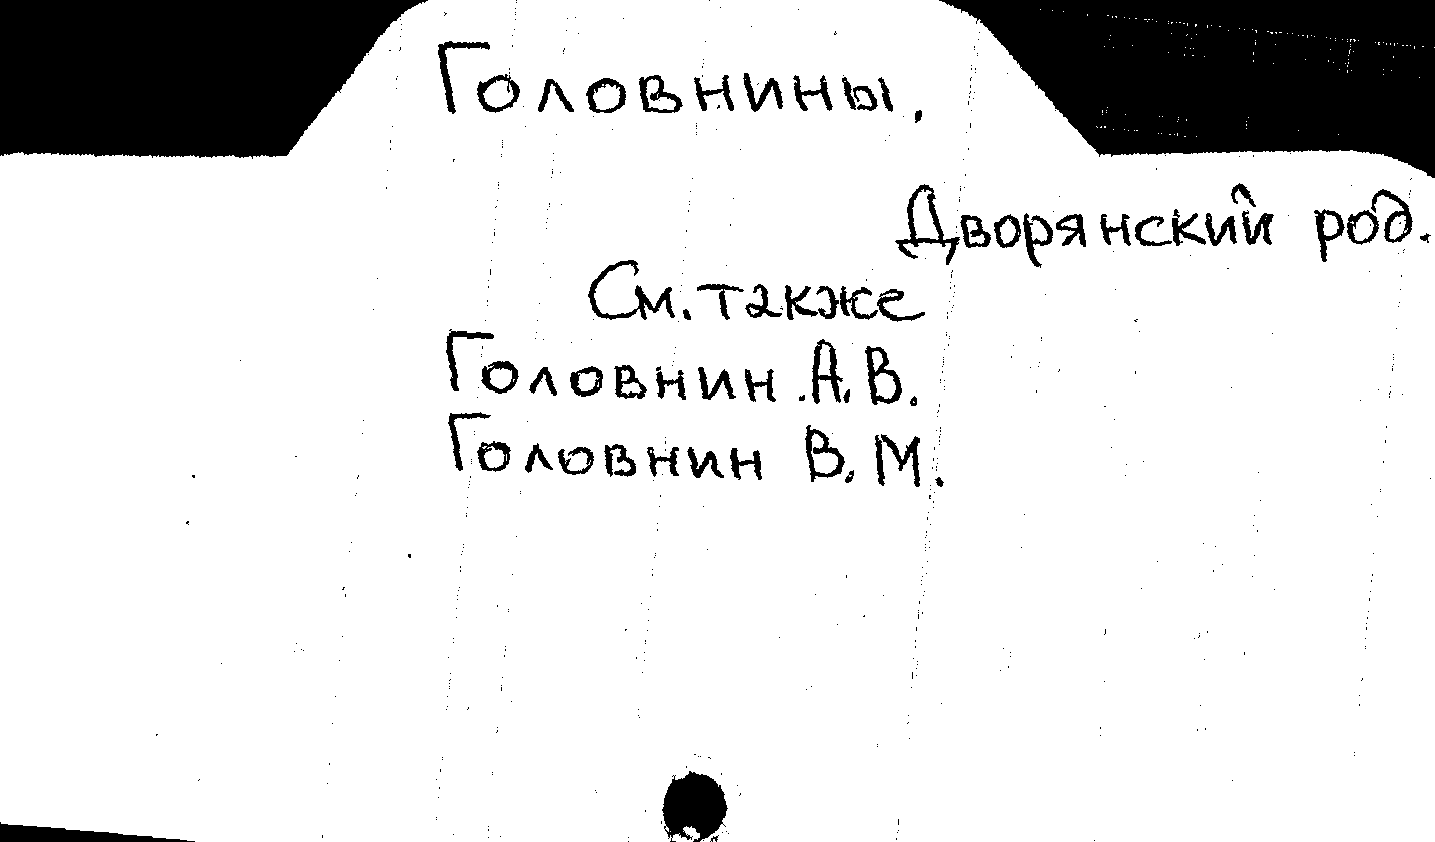 Головнины.
Дворянский род.
См. также
Головнин А.В.
Головнин В.М.